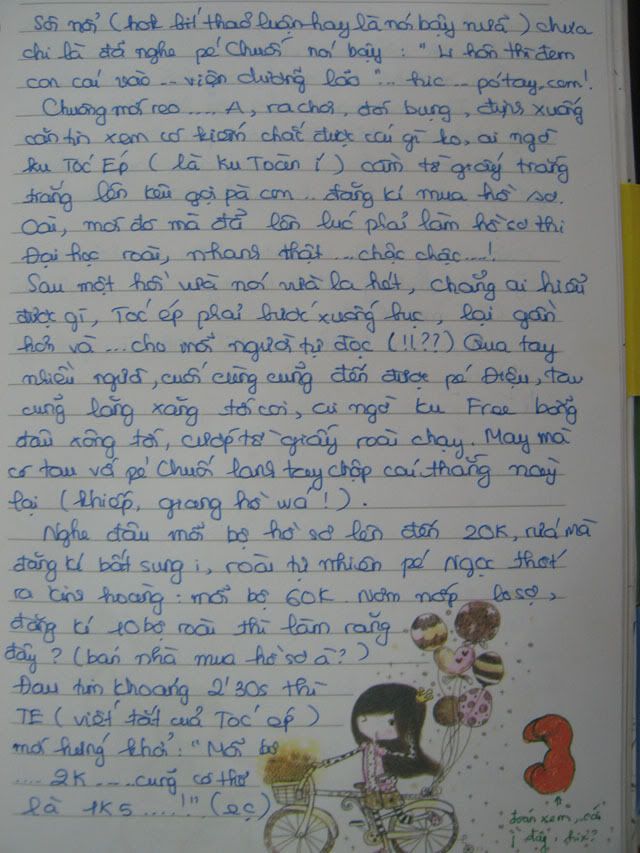 Sôi nổi (hok biết thảo luận hay là nói bậy nữa) chưa
chi là đã nghe pé Chuối nói bậy : " Li hôn thì đem
con cái vào ... viện dưỡng lão "... hic ... pótay.com!
Chuông mới reo .... A, ra chơi, đói bụng, định xuống
căn tin xem có kiếm chắc được cái gì ko, ai ngờ
ku Tóc Ép ( là ku Toàn í ) cầm tờ giấy trắng
trắng lên kêu gọi pà con .. đăng kí mua hồ sơ.
Oài, mới đó mà đã lên lúc phải làm hồ sơ thi
Đại học roài, nhanh thật ... chậc chậc ....!
Sau một hồi vừa nói vừa la hét, chẳng ai hiểu
được gì, Tóc ép phải bước xuống bục, lại gần
hơn và ... cho mỗi người tự đọc (!!??) Qua tay
nhiều người, cuối cùng cũng đến được pé Điệu, tau
cũng lăng xăng tới coi, ai ngờ ku Free bỗng
đâu xông tới, cướp tờ giấy roài chạy. May mà
có tau với pé Chuối lanh tay chộp cái thằng này
lại (khiếp, giang hồ wá !).
Nghe đâu mỗi bộ hồ sơ lên đến 20K, rứa mà
đăng kí bất sung i, roài tự nhiên pé Ngọc thốt
ra kinh hoàng : mỗi bộ 60K. Nơm nớp lo sợ,
đăng kí 10 bộ roài thì làm răng
đây ? (bán nhà mua hồ sơ à ?)
Đau tim khoảng 2'30s thì
TE ( viết tắt của Tóc ép )
mới hứng khởi : "Mỗi bộ
.... 2K .... cũng có thể
là 1K5 .....!" (ẹc)
3
đoán xem, cái
j đây, hix?